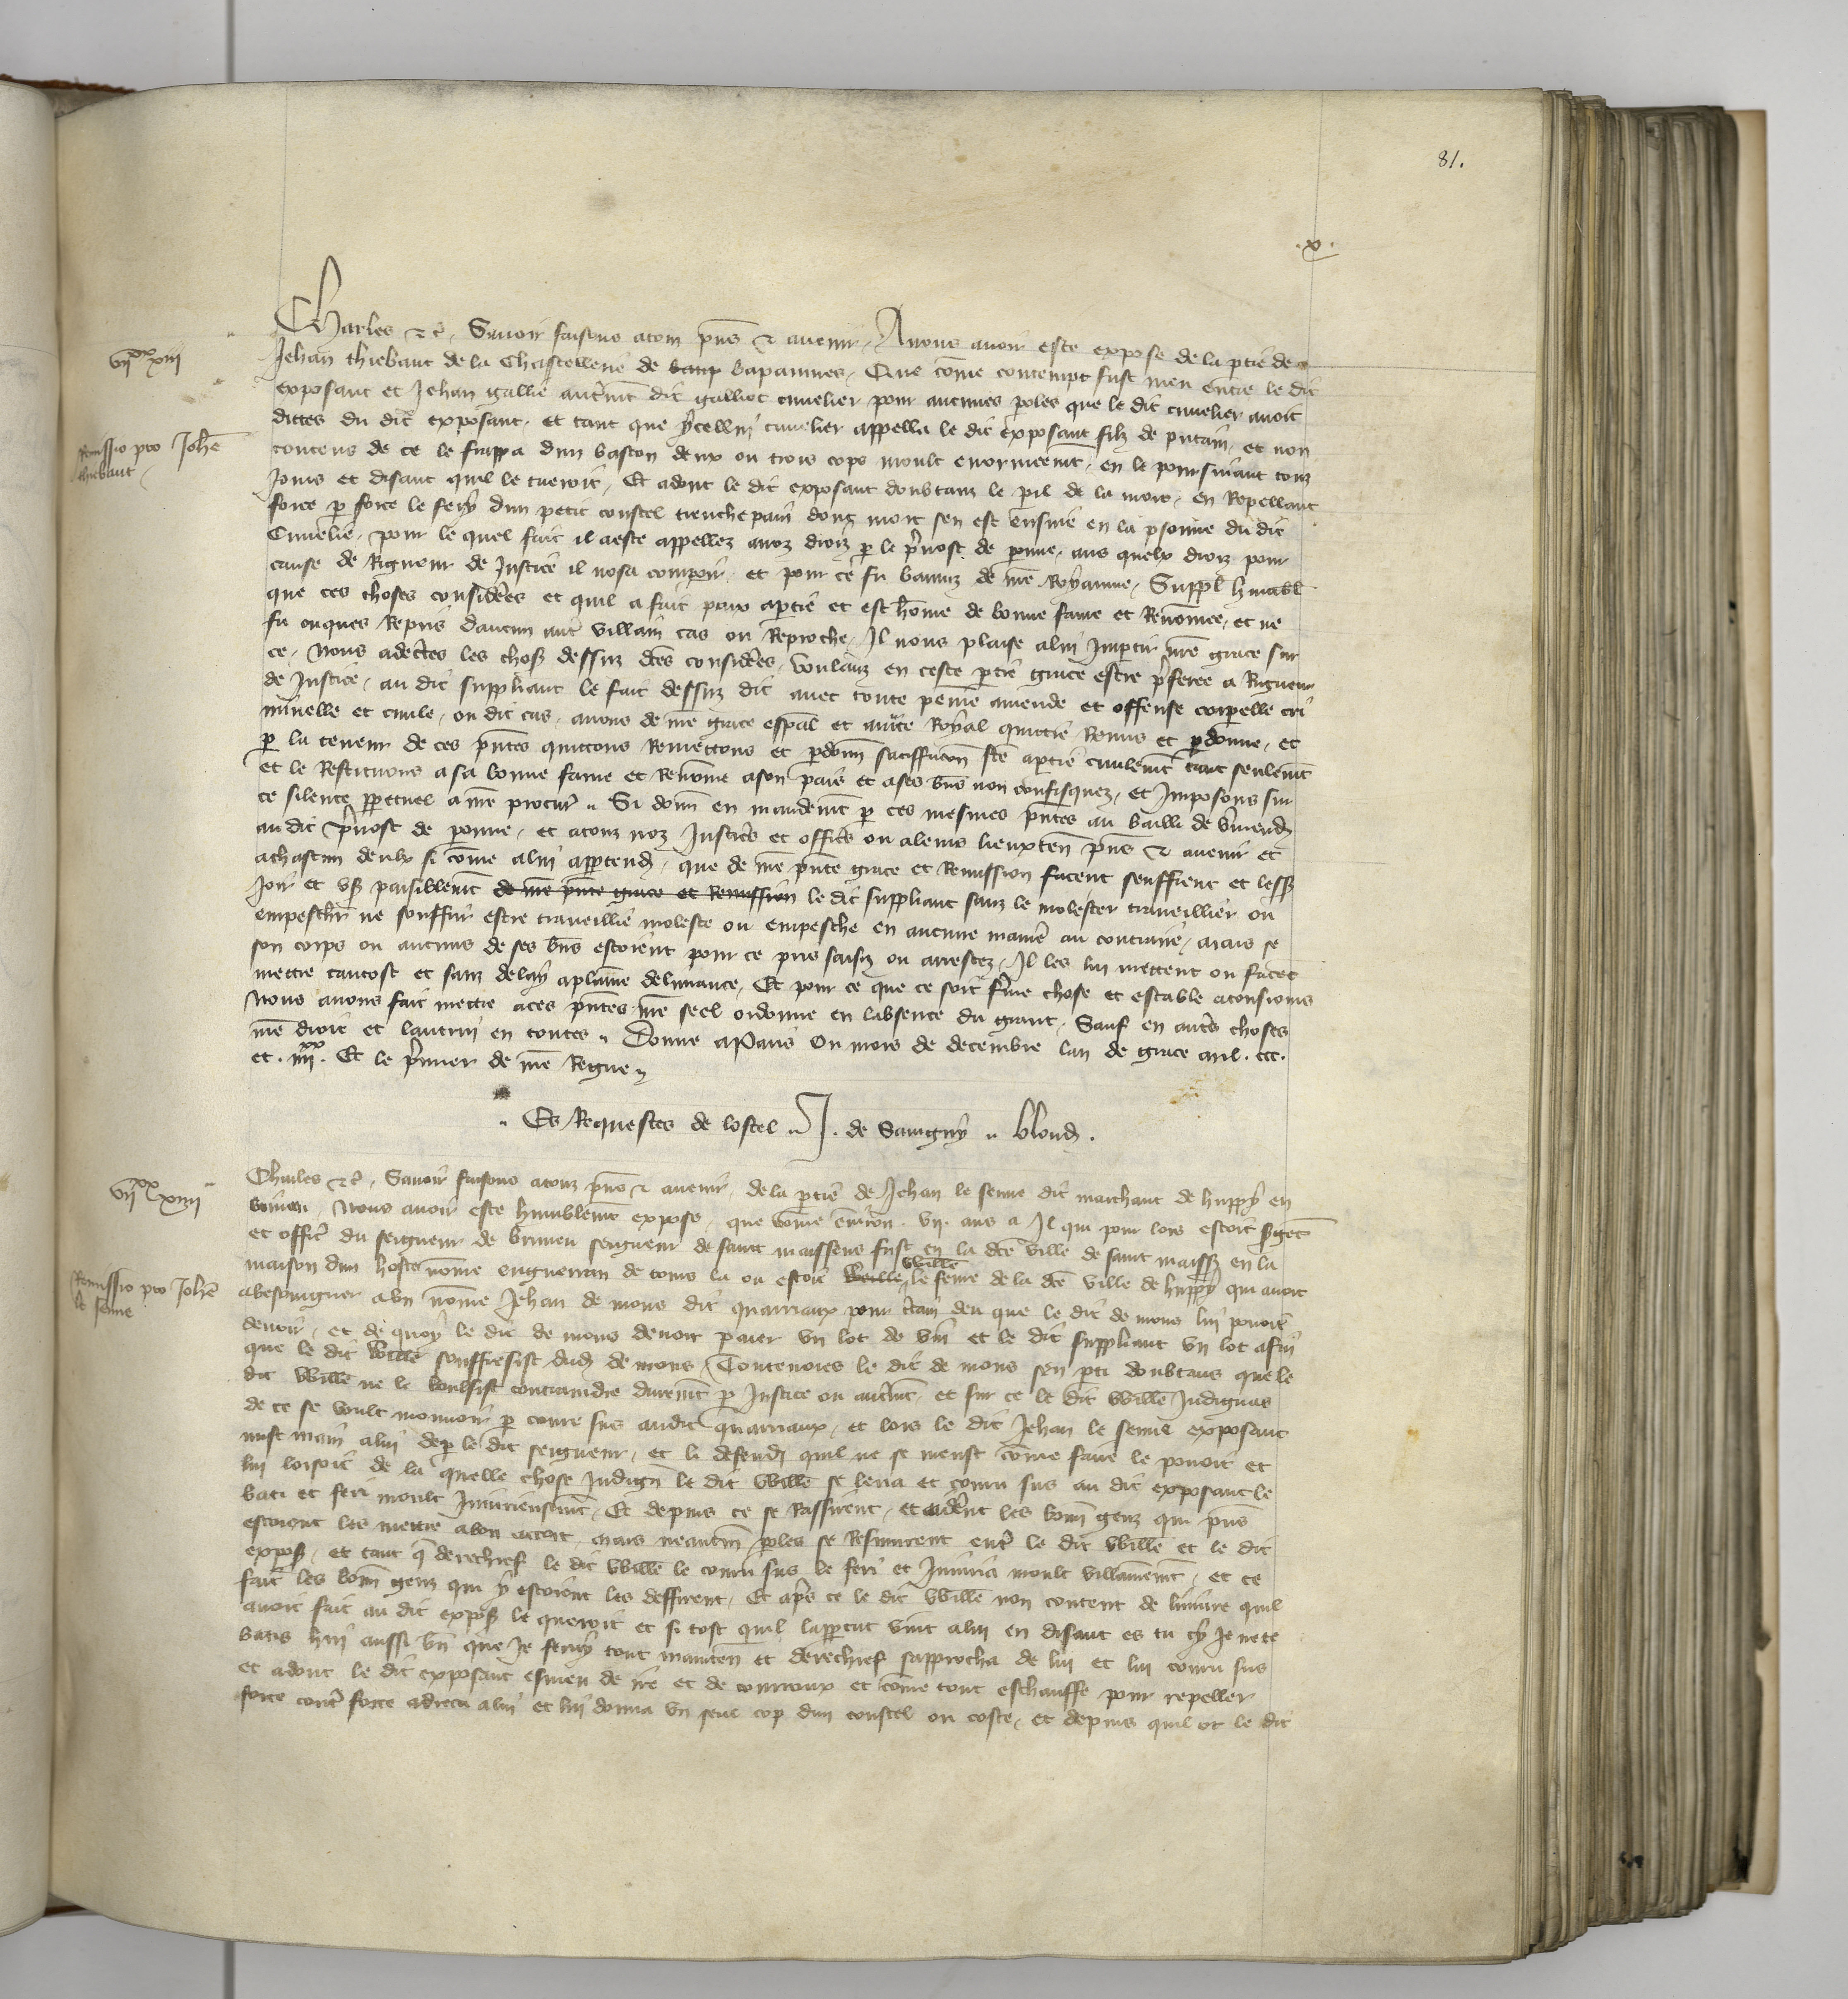 81.
.x.
Charles etc. Savoir faisons a touz pns et avenir. A nous avoir este expose de la ptie de
vijxx xiij
Jehan thiebaut de la Chastellerie de bapaumes. Que cõme contempt fust meu entre le dit
exposant et Jehan gallie autremt dit galliot cuvelier pour aucunes poles que le dit cuvelier avoit
dittes du dit exposant. et tant que ycellui cuvelier appella le dit exposant filz de putain. et non
Remissio pro Johe thiebaut
contens de ce le frappa dun baston deux ou trois cops moult enormeemt. en le poursuiant touz
jours et disant quil le tueroit. Et adont le dit exposant doubtanz le pil de la mort. en Repellant
force p force le fery dun petit coustel trenchepain dont mort sen est ensuie en la psonne du dit
Cuvelie. pour le quel fait il a este appellez a noz droiz p le pvost de pronne. aus quelx droiz pour
cause de Rigueur de Justice il nosa comparoir. et pour ce fu banniz de nre Royaume. Suppl humablt
que ces choses considerees et quil a fait paix a ptie et est hõme de bonne fame et Renõmee. et ne
fu onques Repris daucun aut villain cas ou Reproche. Il nous plaise a lui Impartir nre grace sur
ce. Nous adectes les chos dessuz dces considerees. voulanz en ceste ptie grace estre pferee a Rigueur
de Justice. au dit suppliant le fait dessuz dit avec toute peine amende et offense corporelle cri
minelle et civile. ou dit cas. avons de nre grace espal et aucte Royal quictie Remis et pdonne. et
p la teneur de ces pntes quittons Remettons et pdonn satisffacon fte a ptie civilemt tant seulemt
et le Restituons a sa bonne fame et Renõme a son pais et a ses bns non confisquez. et Imposons sur
ce silence ppetuel a nre procur. Si donn en mandemt p ces mesmes pntes au bailli de vmend
au dit pvost de pronne. et a touz noz Justicrs et officrs ou a leurs lieuxten pns et avenir et
a chascun deulx si cõme a lui apptend. que de nre pnte grace et Remission facent seuffrent et less
Joir et us paisiblemt de nre pnte grace et Remission le dit suppliant sanz le molester traveillier ou
empeschr ne souffrir estre traveillie moleste ou empesche en aucune manie au contraire. mais se
son corps ou aucuns de ses bns estoient pour ce pris saisiz ou arrestez. Il les lui mettent ou facet
mettre tantost et sanz delay a plaine delivrance. Et pour ce que ce soit fme chose et estable a tousjours
Nous avons fait mettre a ces pntes nre seel ordonne en labsence du grant. Sauf en autrs choses
nre droit et lautrui en toutes. Donne a Paris ou mois de decembre lan de grace mil. ccc.
et. iiijxx. Et le pmier de nre Regne.
Es Requestes de lostel. J. de Savigny. blond.
Charles etc. Savoir faisons a touz pns et avenir. de la ptie de Jehan le senne dit marchant de huppy en
vijxx xiiij
vimeu. Nous avoir este humblemt expose. que cõme environ. vij. ans a Il qui pour lors estoit sgent
et offic du seigneur de brimeu seigneur de saint maissens fust en la dce ville de saint maiss en la
maison dun hoste nõme enguerran de tours la ou estoit Wille le senne de la dce ville de huppy qui avoit
Remissio pro Johe le senne
a besoingner a un nõme Jehan de mons dit quarriaux pour ctain deu que le dit de mons lui pouoit
devoir. et de quoy le dit de mons devoit paier un lot de vin et le dit suppliant un lot afin
que le dit Wille souffresist dud de mons. Contenoies le dit de mons sen pti doubtans que le
dit Wille ne le voulsist contraindre duremt p Justice ou autremt. et sur ce le dit Wille Indignas
de ce se voult mouvoir p courre sus audit quarriaux. et lors le dit Jehan le senne exposant
mist main a lui de p le dit seigneur. et li defend quil ne se meust cõme faire le pouoit et
lui loisoit de la quelle chose Indign le dit Wille se leva et couru sus au dit exposant le
bati et feri moult Injurieusemt. Et depuis ce se Rassirent. et cuidert les bonn genz qui pns
estoient les mettre a bon acort. mais neantm poles se Resmurent entr le dit Wille et le dit
expos. et tant q derechief le dit Wille le couru sus le feri et Injuria moult villainemt. et ce
fait les bonn genz qui y estoient les deffirent. Et aprs ce le dit Wille non content de linjure quil
avoit fait au dit expos le queroit et si tost quil lapperceut vint a lui en disant es tu cy Je ne te
batis huy aussi bn que Je feray tout mainten et derechief sapprocha de lui et lui couru sus
et adont le dit exposant esmeu de ire et de courroux et cõme tout eschauffe pour repeller
force contr force adreca a lui et lui donna un seul cop dun coustel ou coste. et depuis quil ot le dit